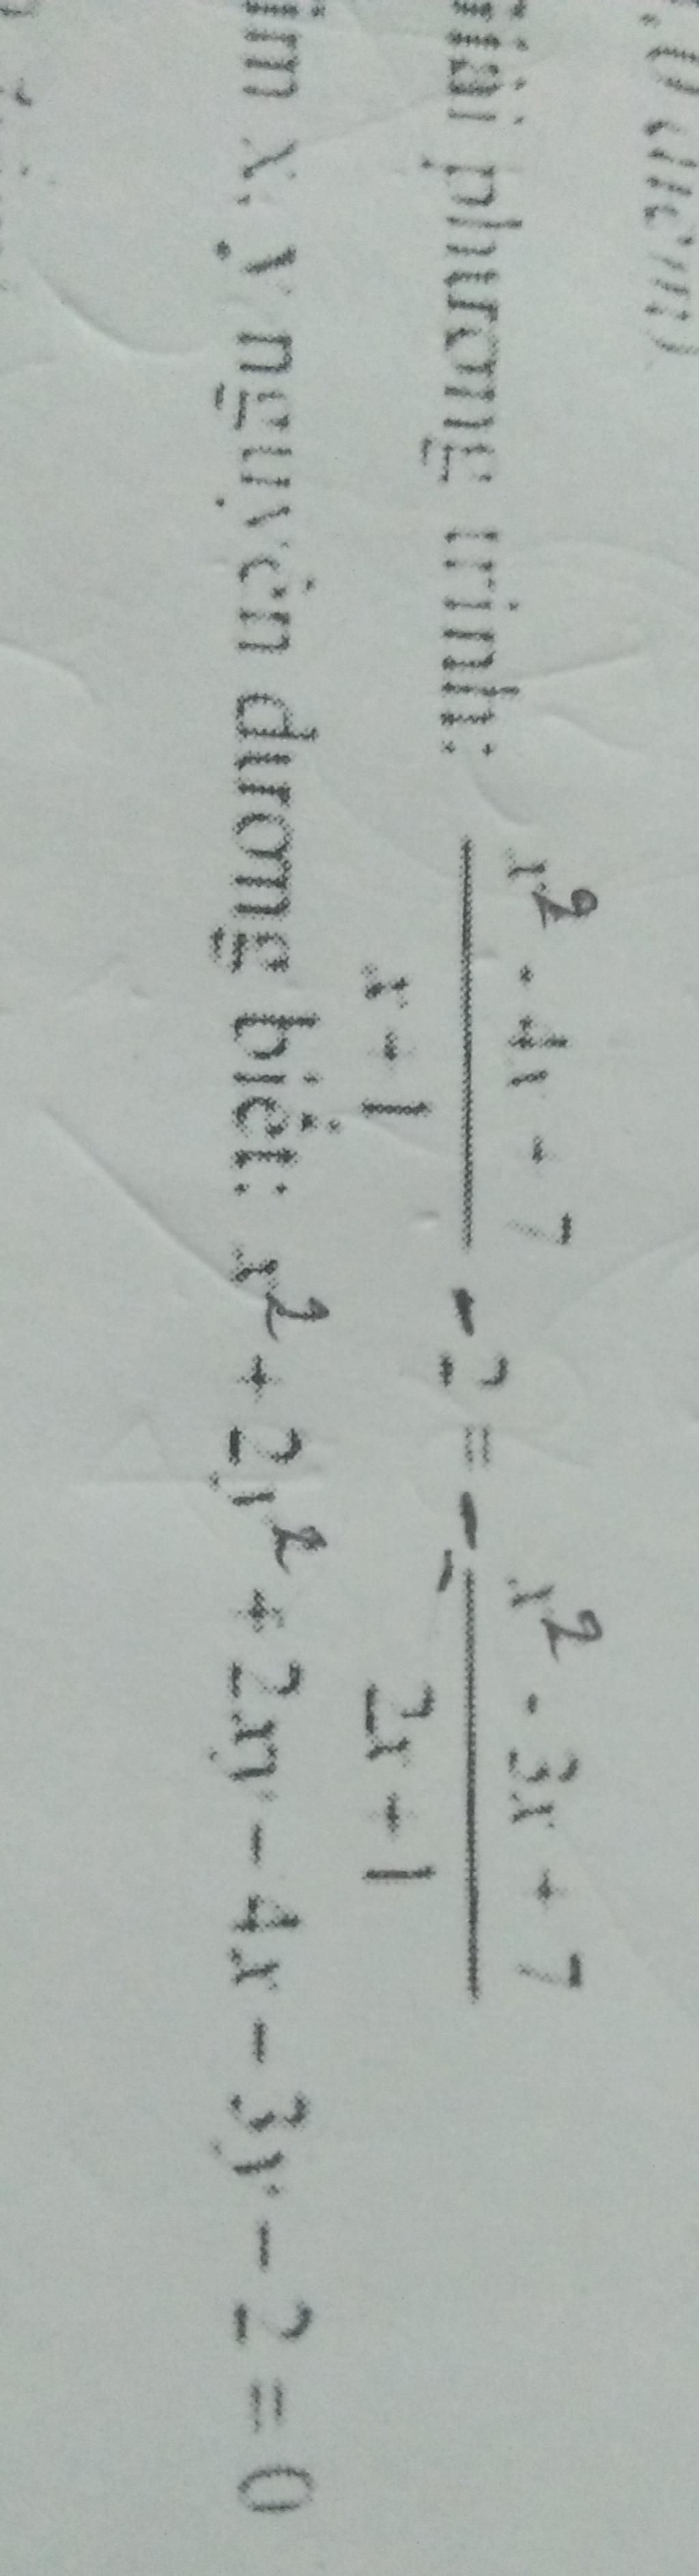 phương trình: x² - 4x - 7 / x - 1 - 2 = - x² - 3x + 7 / 2x + 1
x, y nguyên dương biết: x² + 2y² + 2xy - 4x - 3y - 2 = 0